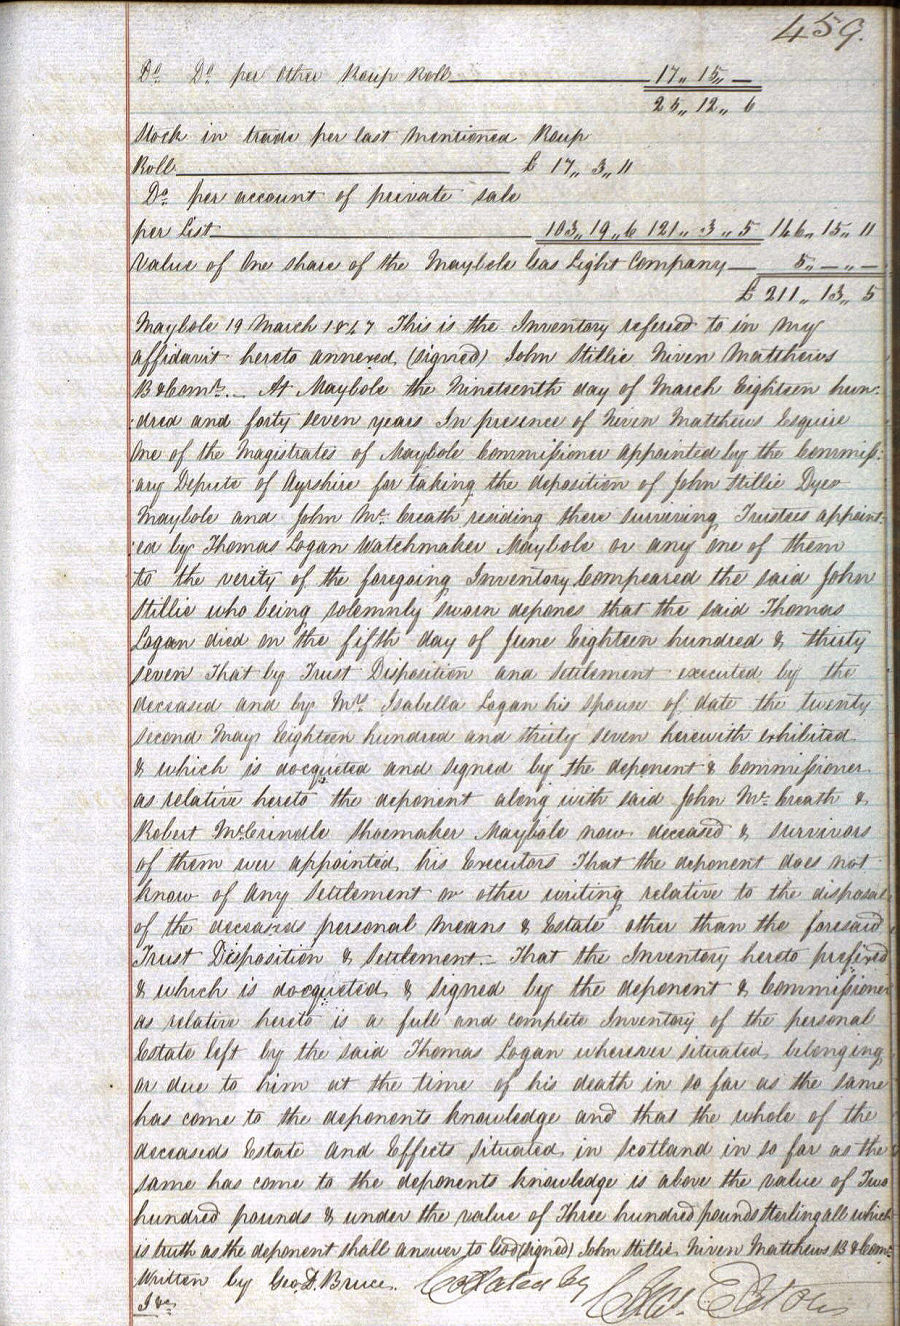 459.
Do. Do. per Other Roup Roll 17,, 15,, —
25,, 12,, 6
Stock in trade per last mentioned Roup
Roll £ 17,, 3,, 11
Do. per account of private sale
per List 103,, 19,, 6 121,, 3,, 5 146,, 15,, 11
Value of One share of the Maybole Gas Light Company — 5,, —,, —
£ 211,, 13,, 5
Maybole 19 March 1847 This is the Inventory referred to in my
affidavit hereto annexed (signed) John Stillie Niven Matthews
B & Comr. — At Maybole the Nineteenth day of March Eighteen hun:
:dred and forty seven years In presence of Niven Matthews Esquire
One of the Magistrates of Maybole Commissioner appointed by the Commiss:
:ary Depute of Ayrshire for taking the deposition of John Stillie Dyer
Maybole and John Mc.Creath residing there surviving Trustees appoint:
:ed by Thomas Logan Watchmaker Maybole or any one of them
to the verity of the foregoing Inventory Compeared the said John
Stillie who being solemnly sworn depones that the said Thomas
Logan died on the fifth day of June Eighteen hundred & thirty
seven That by Trust Disposition and Settlement executed by the
deceased and by Mrs. Isabella Logan his spouse of date the twenty
second May Eighteen hundred and thirty seven herewith exhibited
& which is docqueted and signed by the deponent & Commissioner
as relative hereto the deponent along with said John Mc.Creath &
Robert McCrindle Shoemaker Maybole now deceased & survivors
of them wer appointed his Executors That the deponent does not
know of any settlement or other writing relative to the disposal
of the deceaseds personal means & Estate other than the foresaid
Trust Disposition & Settlement. — That the Inventory hereto prefixed
& which is docqueted & signed by the deponent & Commissioner
as relative hereto is a full and complete Inventory of the personal
Estate left by the said Thomas Logan wherever situated, belonging
or due to him at the time of his death in so far as the same
has come to the deponents knowledge and that the whole of the
deceaseds Estate and Effects situated in Scotland in so far as the
same has come to the deponents knowledge is above the value of Two
hundred pounds & under the value of Three hundred pounds sterling all which
is truth as the deponent shall answer to God (signed) John Stillie, Niven Matthews B & Comr.
Written by Geo. D. Bruce. Collated by